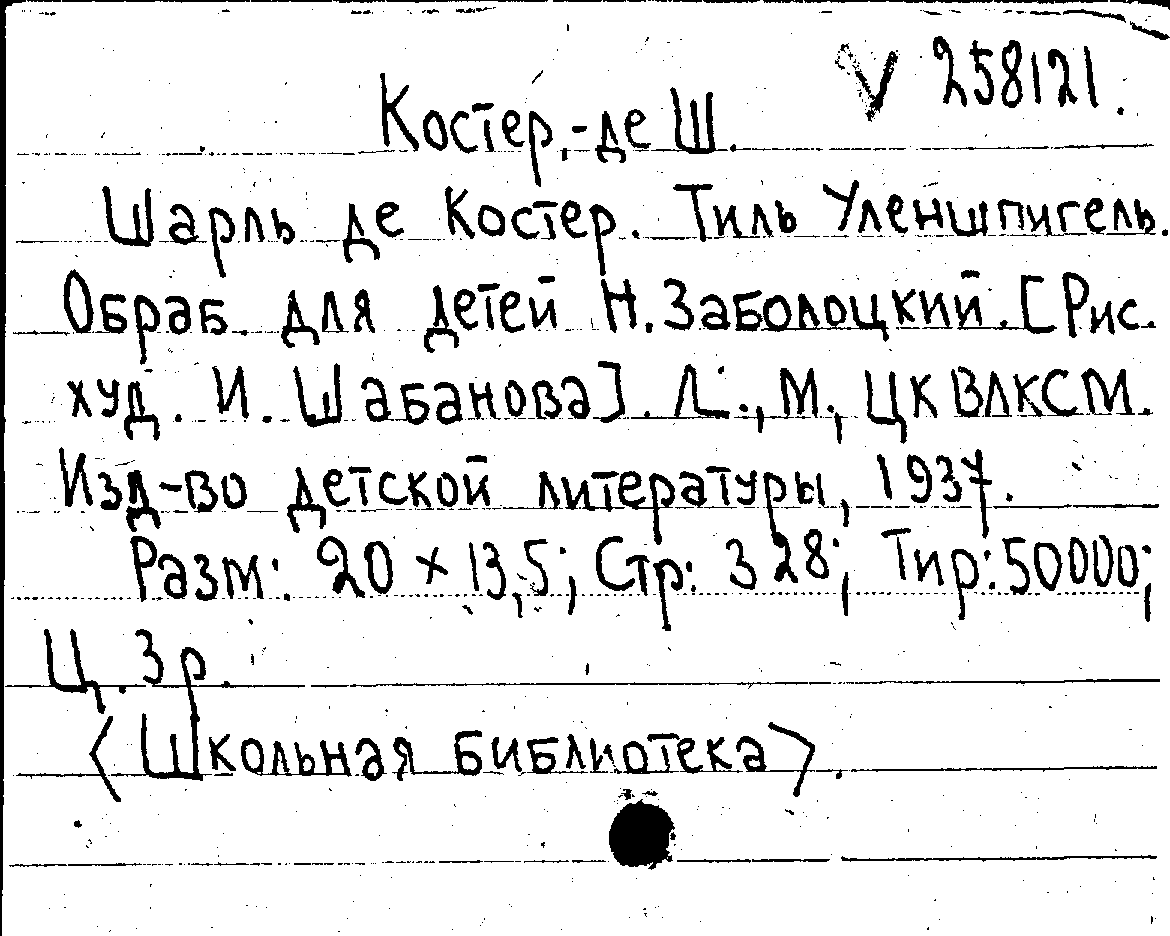 V 258121.
Костер,-де Ш.
Шарль де Костер. Тиль Уленшпигель.
Обраб. для детей Н. Заболоцкий. [Рис.
худ. И. Шабанова]. Л., М., ЦК ВЛКСМ.
Изд-во детской литературы, 1937.
Разм: 20 × 13,5; Стр: 328; Тир: 50000;
Ц. 3 р.
<Школьная библиотека>.